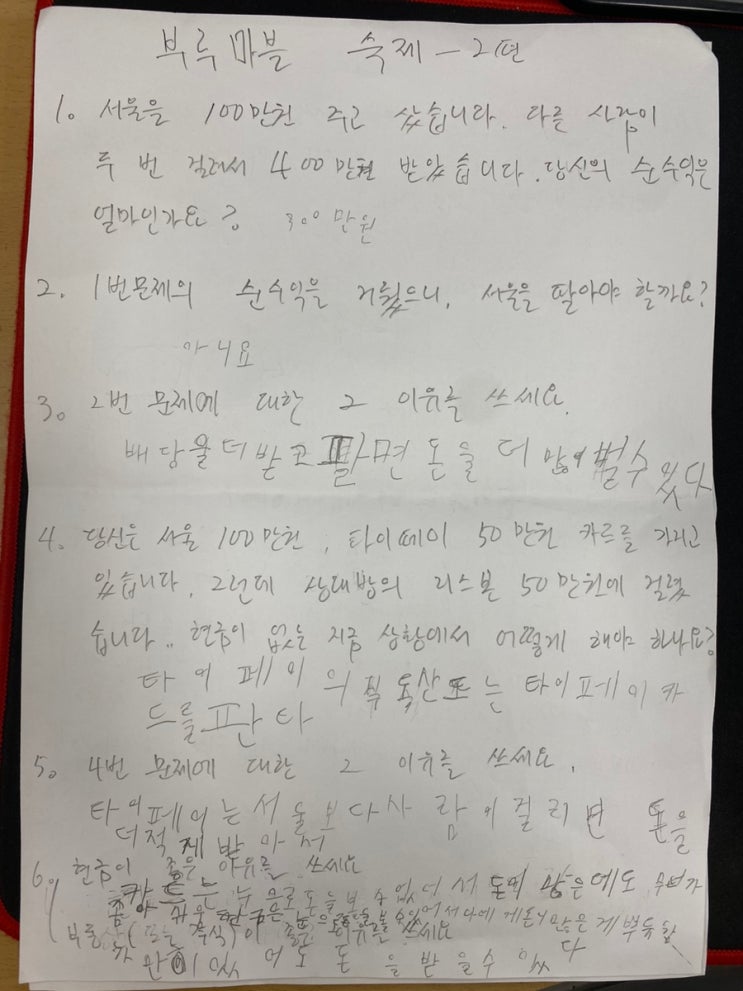 부루마블 숙제 - 2편
1. 서울을 100만원 주고 샀습니다. 다른 사람이
두 번 걸려서 400만원 받았습니다. 당신의 순수익은
얼마인가요? 300만원
2. 1번문제의 순수익을 거뒀으니, 서울을 팔아야 할까요?
아니요
3. 2번 문제에 대한 그 이유를 쓰세요.
배당을 더 받고 팔면 돈을 더 많이 벌수 있다
4. 당신은 서울 100만원, 타이페이 50만원 카드를 가지고
있습니다. 그런데 상대방의 리스본 50만원에 걸렸
습니다.. 현금이 없는 지금 상황에서 어떻게 해야 하나요?
타이페이의 또는 타이페이 카
드를 판다
5. 4번 문제에 대한 그 이유를 쓰세요.
타이페이는 서울보다 사람이 걸리면 돈을
더 적게 받아서
6. 현금이 좋은 이유를 쓰세요
눈으로 돈을 볼 수 있어서
부동산(또는 주식)이 좋은 이유를 쓰세요
있어도 돈을 받을수 있다